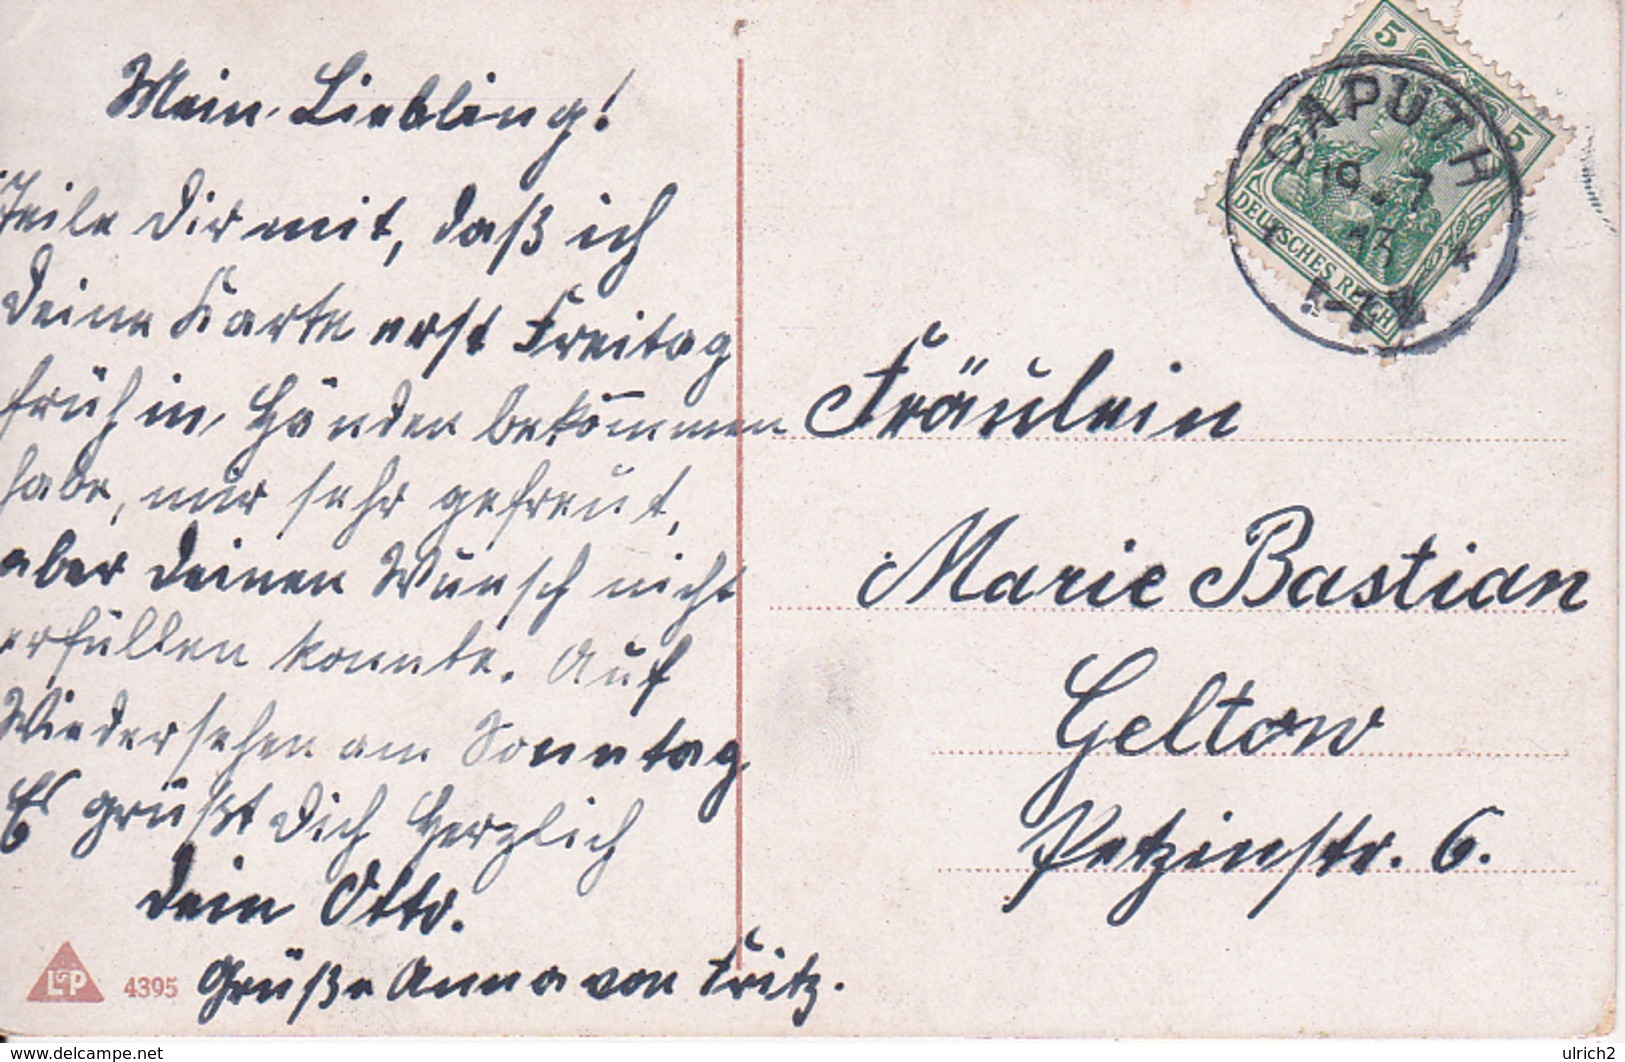 Mein Liebling!
Teile Dir mit, daß ich
Deine Karte erst Freitag
früh in Händen bekommen
habe, mir sehr gefreut,
aber Deinen Wunsch nicht
erfüllen konnte. Auf
Wiedersehen am Sonntag
Es grüßt Dich Herzlich
Dein Otto.
Grüße Anna von Fritz.
L&P 4395
5 5
DEUTSCHES REICH
CAPUTH
19.7
13
Fräulein
Marie Bastian
Geltow
Petzinstr. 6.
www.delcampe.net
ulrich2